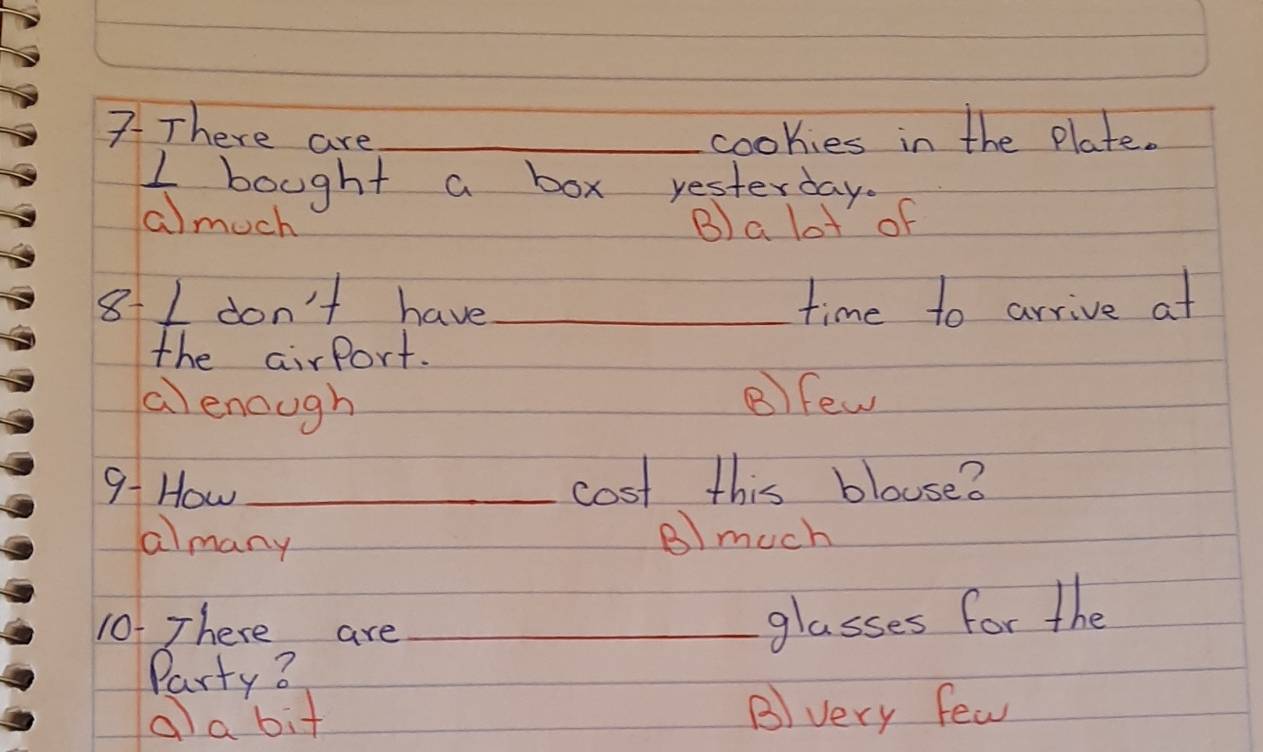 7- There are __________ cookies in the Plate.
I bought a box yesterday.
a) much B) a lot of
8- I don't have __________ time to arrive at
the airPort.
a) enough B) few
9- How __________ cost this blouse?
a) many B) much
10- There are __________ glasses for the
Party?
a) a bit B) very few